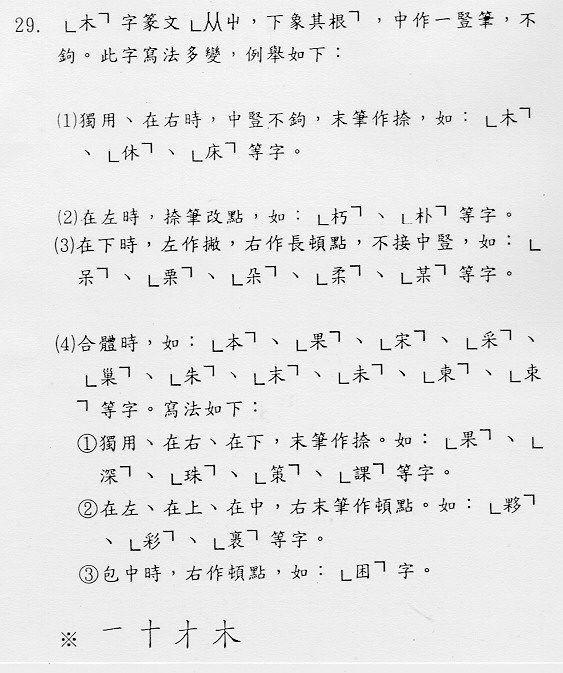 29. ﹂木﹁字篆文﹂从屮，下象其根﹁，中作一豎筆，不
鉤。此字寫法多變，例舉如下：
⑴獨用、在右時，中豎不鉤，末筆作捺，如：﹂木﹁
、﹂休﹁、﹂床﹁等字。
⑵在左時，捺筆改點，如：﹂朽﹁、﹂朴﹁等字。
⑶在下時，左作撇，右作長頓點，不接中豎，如：﹂
呆﹁、﹂栗﹁、﹂朵﹁、﹂柔﹁、﹂某﹁等字。
⑷合體時，如：﹂本﹁、﹂果﹁、﹂宋﹁、﹂采﹁、
﹂巢﹁、﹂朱﹁、﹂末﹁、﹂未﹁、﹂東﹁、﹂束
﹁等字。寫法如下：
①獨用、在右、在下，末筆作捺。如：﹂果﹁、﹂
深﹁、﹂珠﹁、﹂策﹁、﹂課﹁等字。
②在左、在上、在中，右末筆作頓點。如：﹂夥﹁
、﹂彩﹁、﹂裹﹁等字。
③包中時，右作頓點，如：﹂困﹁字。
※ 一十才木